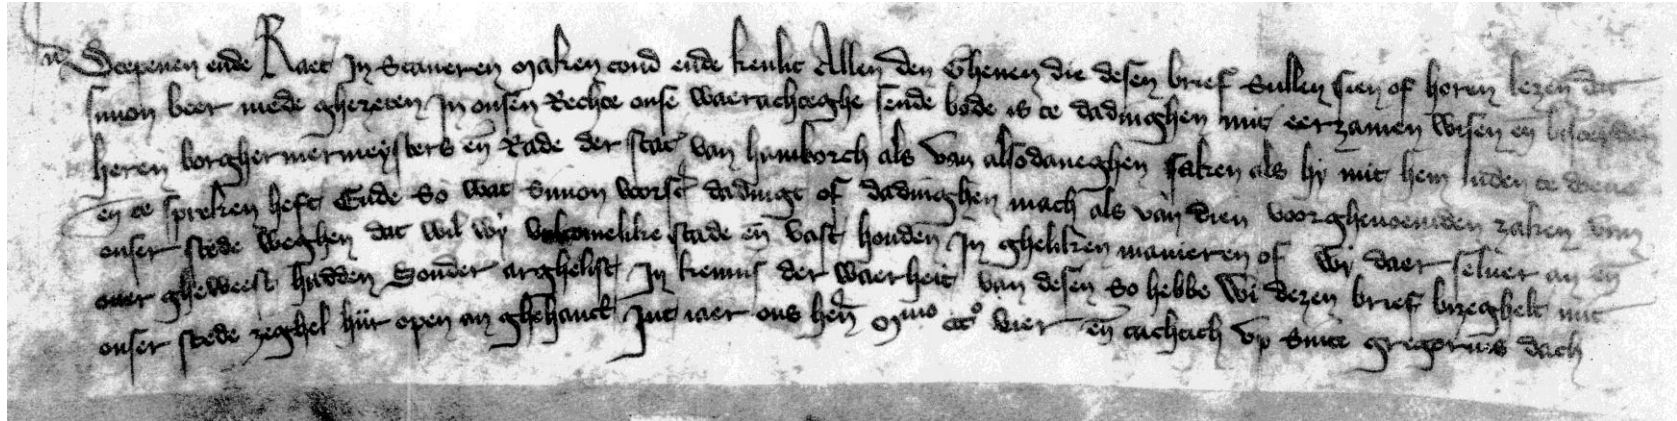 Scepenen ende Raet in Staueren maken cond ende kenlic Allen den Ghenen die desen brief Sullen sien of horen lezen dat
Simon beer mede ghezeten In onsen Rechte onse waerachteghe sende bode is te dadinghen mit eerzamen wisen en̄
heren borghermermeysters en̄ Rade der stat van hamborch als van alsodaneghen saken als hy mit hem luden te doene
en̄ te spreken heft Ende So wat Simon voorsc̄ dadingt of dadinghen mach als van dien voorghenoemden zaken van
onser stede weghen dat wil wy volcomelike stade en̄ vast houden In gheliken manieren of wy daer seluer an en̄
ouer gheweest hadden Sonder arghelist In kennis der waerheit van desen So hebbe wi dezen brief bezeghelt mit
onser stede zeghel hiir open an ghehanck Int iaer ons hen̄ Mmo ccco vier en̄ tachtich vp Sinte gregorius dach